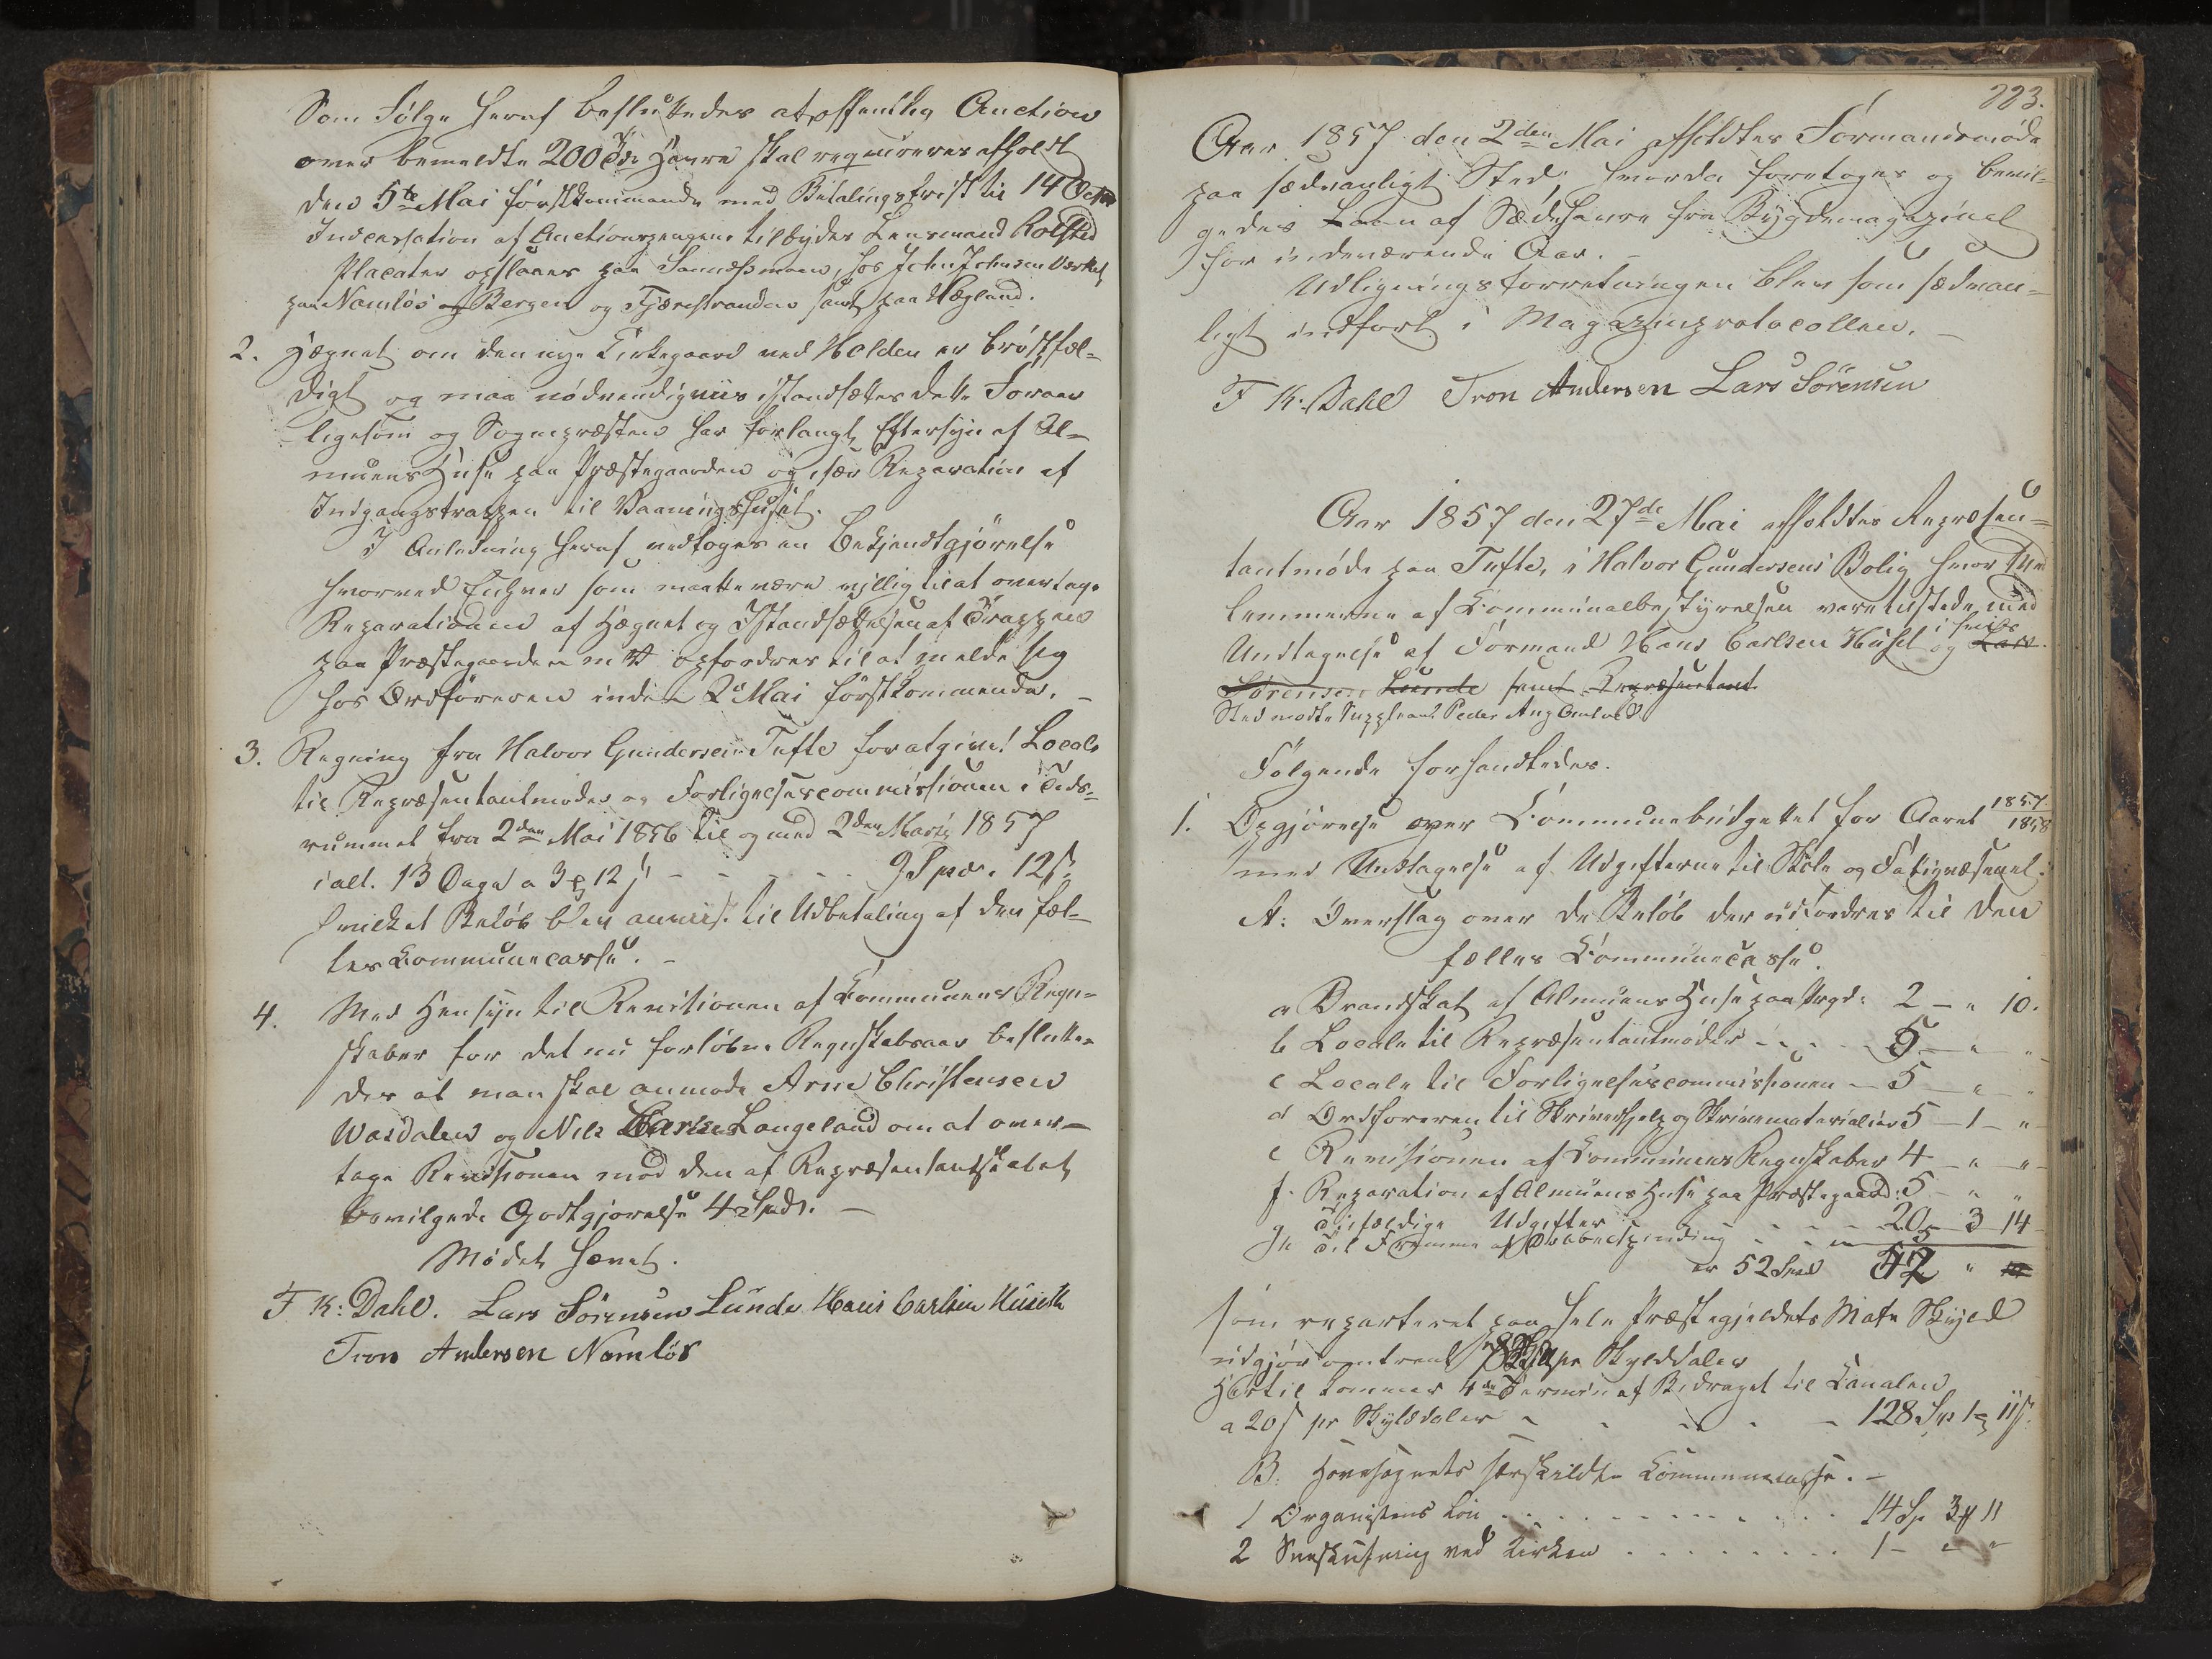 Som Følge heraf besluttedes at offentlig Auction
over bemeldte 200 Tdr Havre skal requireres afholdt
den 5te Mai førstkommende med Betalingsfrist til 14 Octbr
Indcassation af Auctionspengene tilbydes Lensmand Rolsted
Placater opslaaes paa Sannæsmoen, hos John Johnsen Værket
paa Namløs og Bergen og Tjærestranden samt paa Høgland.
2. Hægnet om den nye Kirkegaard ved Holden er brøstfæl-
digt og maa nødvendigviis istandsættes dette Foraar
ligesom og Sognepræsten har forlangt Eftersyn af Al-
muens Huse paa Præstegaarden og især Reparation af
Indgangstrappen til Vaaningshuset.
I Anledning heraf vedtoges en Bekjendtgjørelse
hvorved Enhver som maatte være villig til at overtage
Reparationen af Hægnet og Istandsættelsen af Trappen
paa Præstegaarden m v opfordres til at melde sig
hos Ordføreren inden 2d Mai førstkommende. –
3. Regning fra Halvor Gundersen Tufte for afgivet Locale
til Repræsentantmøder og Forligelsescommissionen i Tids-
rummet fra 2den Mai 1856 til og med 2den Marts 1857
ialt. 13 Dage a 3 ₰ 12 s – – – – 9 Spd. " 12 s.
hvilket Beløb blev anviist til Udbetaling af den fæl-
les Kommunecasse. –
4. Med Hensyn til Revisionen af Kommunens Regn-
skaber for det nu forløbne Regnskabsaar beslutte-
des at man skal anmode Arne Christensen
Wasdalen og Nils Larsen Langeland om at over-
tage Revisionen mod den af Repræsentantskabet
bevilgede Godtgjørelse 4 Spd. –
Mødet hævet.
F K: Dahl. Lars Sörensen Lunde Hans Carlsen Huseth
Tron Andersen Namlös
223.
Aar 1857 den 2den Mai afholdtes Formandsmøde
paa sædvanligt Sted, hvorda foretoges og bevil-
gedes Laan af Sædehavre fra Bygdemagazinet
for indeværende Aar. –
Udligningsforretningen blev som sædvan-
ligt indført i Magazinprotocollen. –
F K. Dahl Tron Andersen Lars Sörensen
Aar 1857 den 27de Mai afholdtes Repræsen-
tantmøde paa Tufte, i Halvor Gundersens Bolig hvor Med
lemmerne af Kommunalbestyrelsen vare tilstede med
Undtagelse af Formand Hans Carlsen Huset i hvis og Lars
Sørensen Lunde samt Repræsentant
Sted mødte Suppleant Peder Aug
Følgende forhandledes.
1. Opgjørelse over Kommunebudgettet for Aaret 1857/1858
med Undtagelse af Udgifterne til Skole og Fatigvæsenet.
A: Overslag over de Beløb der udfordres til den
fælles Kommunecasse.
a Brandskat af Almuens Huse paa Prgd: 2 – " 10.
b Locale til Repræsentantmøder – – – 5 – " "
c Locale til Forligelsescommissionen – 5 – " "
d Ordføreren til Skriverhjelp og Skrivematerialier 5 – 1 – "
e Revisionen af Kommunens Regnskaber 4 – " – "
f. Reparation af Almuens Huse paa Præstegaard: 5 – " "
g Tilfældige Udgifter – – – 20 – 3 14
h Til Fremme af – – – 5
er 52 Spd 42 "
som reparteret paa hele Præstegjeldets Matr Skyld
udgjør omtrent 8 s pr Skylddaler
Hertil kommer 4de Termin af Bidraget til Kanalen
a 20 s pr Skylddaler – – – – – 128 Sp 1 ₰ 11 s.
B. Hovesognets særskildte Kommunecasse. –
1 Organistens Løn . . . . . . . . . . 14 Sp 3 ₰ 11
2 Sneskufning ved Kirken . . . . . . . . . 1 – " "